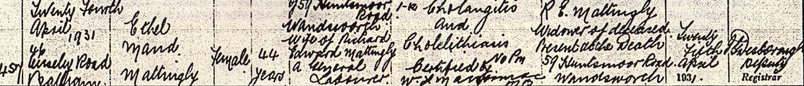 Twenty Fourth
April 1931
457
46
Road
Balham
Ethel
Maud
Mattingly
Female
44
years
59 Huntsmoor
Road
Wandsworth
Wife of Richard
Edward Mattingly
a General
Labourer
Cholangitis
and
Cholelithiasis
Certified by
No P.M.
R. E. Mattingly
Widower of deceased
Present at the Death
59 Huntsmoor Road
Wandsworth
Twenty
Fifth
April
1931.
Deputy
Registrar